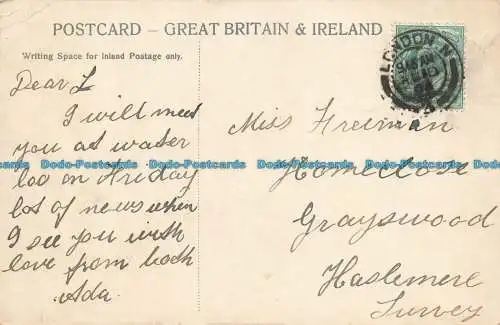 POSTCARD – GREAT BRITAIN & IRELAND
Writing Space for Inland Postage only.
LONDON. N
Dear L
I will meet
you at water
loo on Friday
lots of news when
I see you with
love from both
Ada.
Miss Freeman
Homeclose
Grayswood
Haslemere
Surrey
Dodo-Postcards Dodo-Postcards Dodo-Postcards Dodo-Postcards Dodo-Postcards